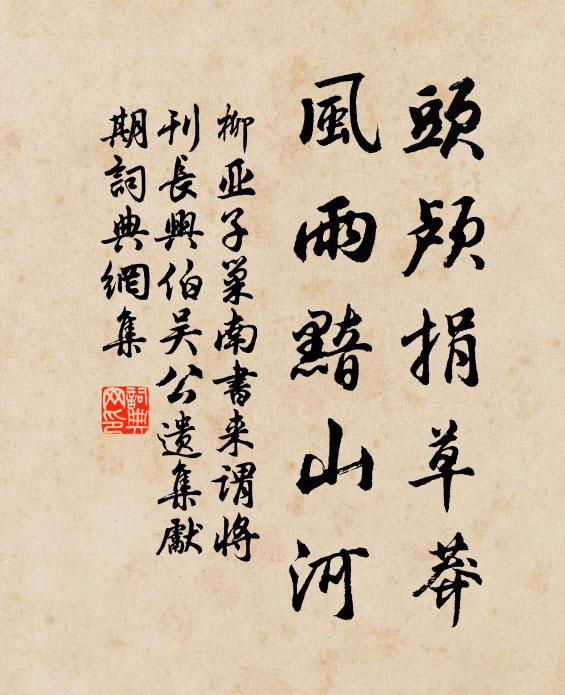 頭顱捐草莽
風雨黯山河
柳亚子巢南書来謂將
刊長興伯吴公遗集獻
期詞典網集
詞典网印